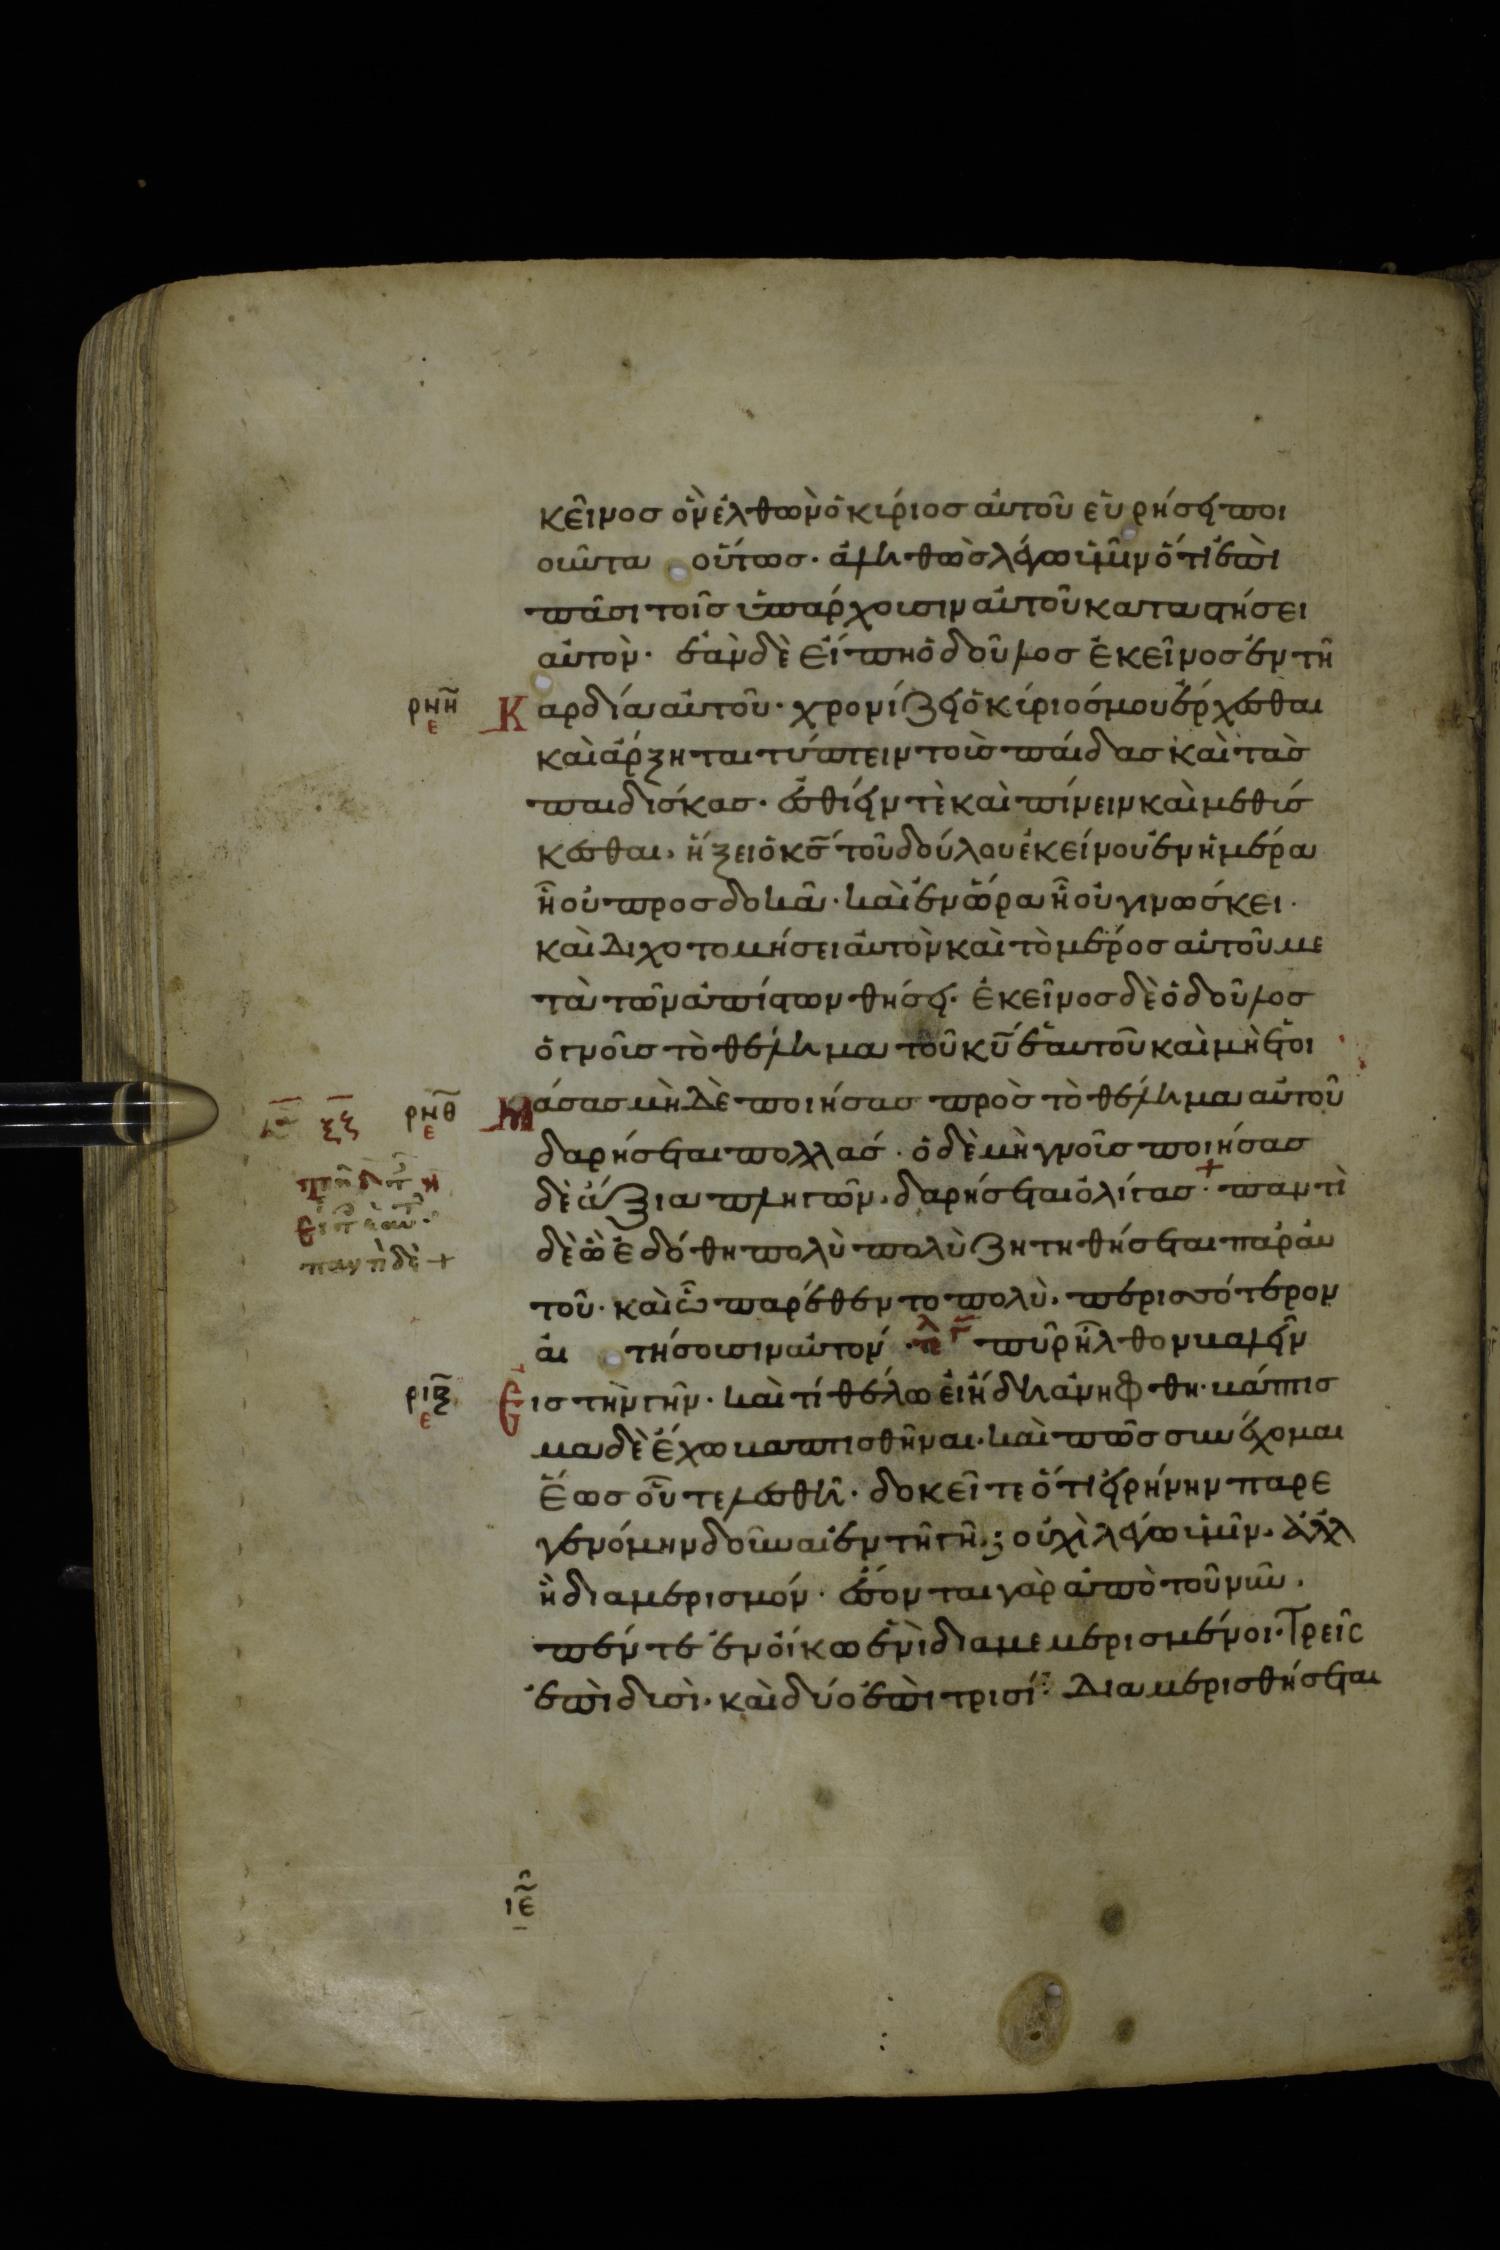 κεῖνος ὃν ἐλθὼν ὁ κύριος αὐτοῦ εὑρήσει ποι
οῦντα οὕτως· ἀληθῶς λέγω ὑμῖν ὅτι ἐπὶ
πᾶσι τοῖς ὑπάρχουσιν αὐτοῦ καταστήσει
αὐτὸν· ἐὰν δὲ εἴπη ὁ δοῦλος ἐκεῖνος ἐν τῆ
ρνη ε Καρδία αὐτοῦ· χρονίζει ὁ κύριός μου ἔρχεσθαι
καὶ ἄρξηται τύπτειν τοὺς παίδας καὶ τὰς
παιδίσκας· ἐσθίειν τὲ καὶ πίνειν καὶ μεθύσ
κεσθαι, ἥξει ὁ κς τοῦ δούλου ἐκείνου ἐν ἡμέρα
ἧ οὐ προσδοκᾶ· καὶ ἐν ὥρα ἧ οὐ γινώσκει·
καὶ διχοτομήσει αὐτὸν καὶ τὸ μέρος αὐτοῦ με
τὰ τῶν ἀπίστων θήσει· ἐκεῖνος δὲ ὁ δοῦλος
ὁ γνοὺς τὸ θέλημα τοῦ κυ ἑαυτοῦ καὶ μὴ ἑτοι
ρνθ ε Μάσας μὴ δὲ ποιήσας πρὸς τὸ θέλημα αὐτοῦ
ξξ
δαρήσεται πολλάς· ὁ δὲ μὴ γνοὺς ποιήσας
δὲ ἄξια πληγῶν, δαρήσεται ὀλίγας·+ παντὶ
παντὶ δὲ +
δὲ ᾧ ἐδόθη πολὺ πολὺ ζητηθήσεται παρ' αὐ
τοῦ· καὶ ᾧ παρέθεντο πολὺ, περισσότερον
αἰτήσουσιν αὐτόν· πῦρ ἦλθον καλεῖν
ριξ ε Εἰς τὴν γῆν· καὶ τί θέλω εἰ ἤδη ἀνήφθη· κάπτισ
μα δὲ ἔχω καπτισθῆναι· καὶ πῶς συνέχομαι
ἕως οὗ τελεσθῆ· δοκεῖτε ὅτι εἰρήνην παρε
γενόμην δοῦναι ἐν τῆ γῆ; οὐχὶ λέγω ὑμῖν, ἀλλ
ἢ διαμερισμόν· ἔσονται γὰρ ἀπὸ τοῦ νῦν·
πέντε ἐν οἴκω ἑνὶ διαμεμερισμένοι· Τρεῖς
ἐπὶ δυσὶ· καὶ δύο ἐπὶ τρισί· Διαμερισθήσεται
ιε